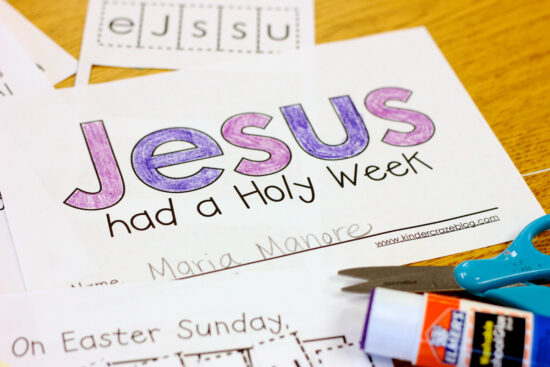 e J s s u
Jesus
had a Holy Week
Name Maria Manore
www.kindercrazeblog.com
On Easter Sunday,
ELMER'S
Washable